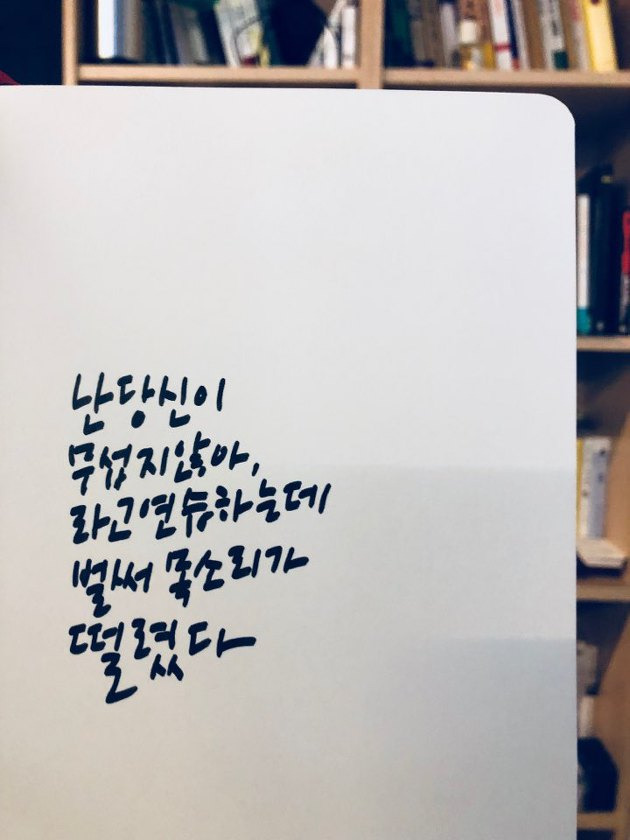 난 당신이
무섭지 않아,
라고 연습하는데
벌써 목소리가
떨렸다